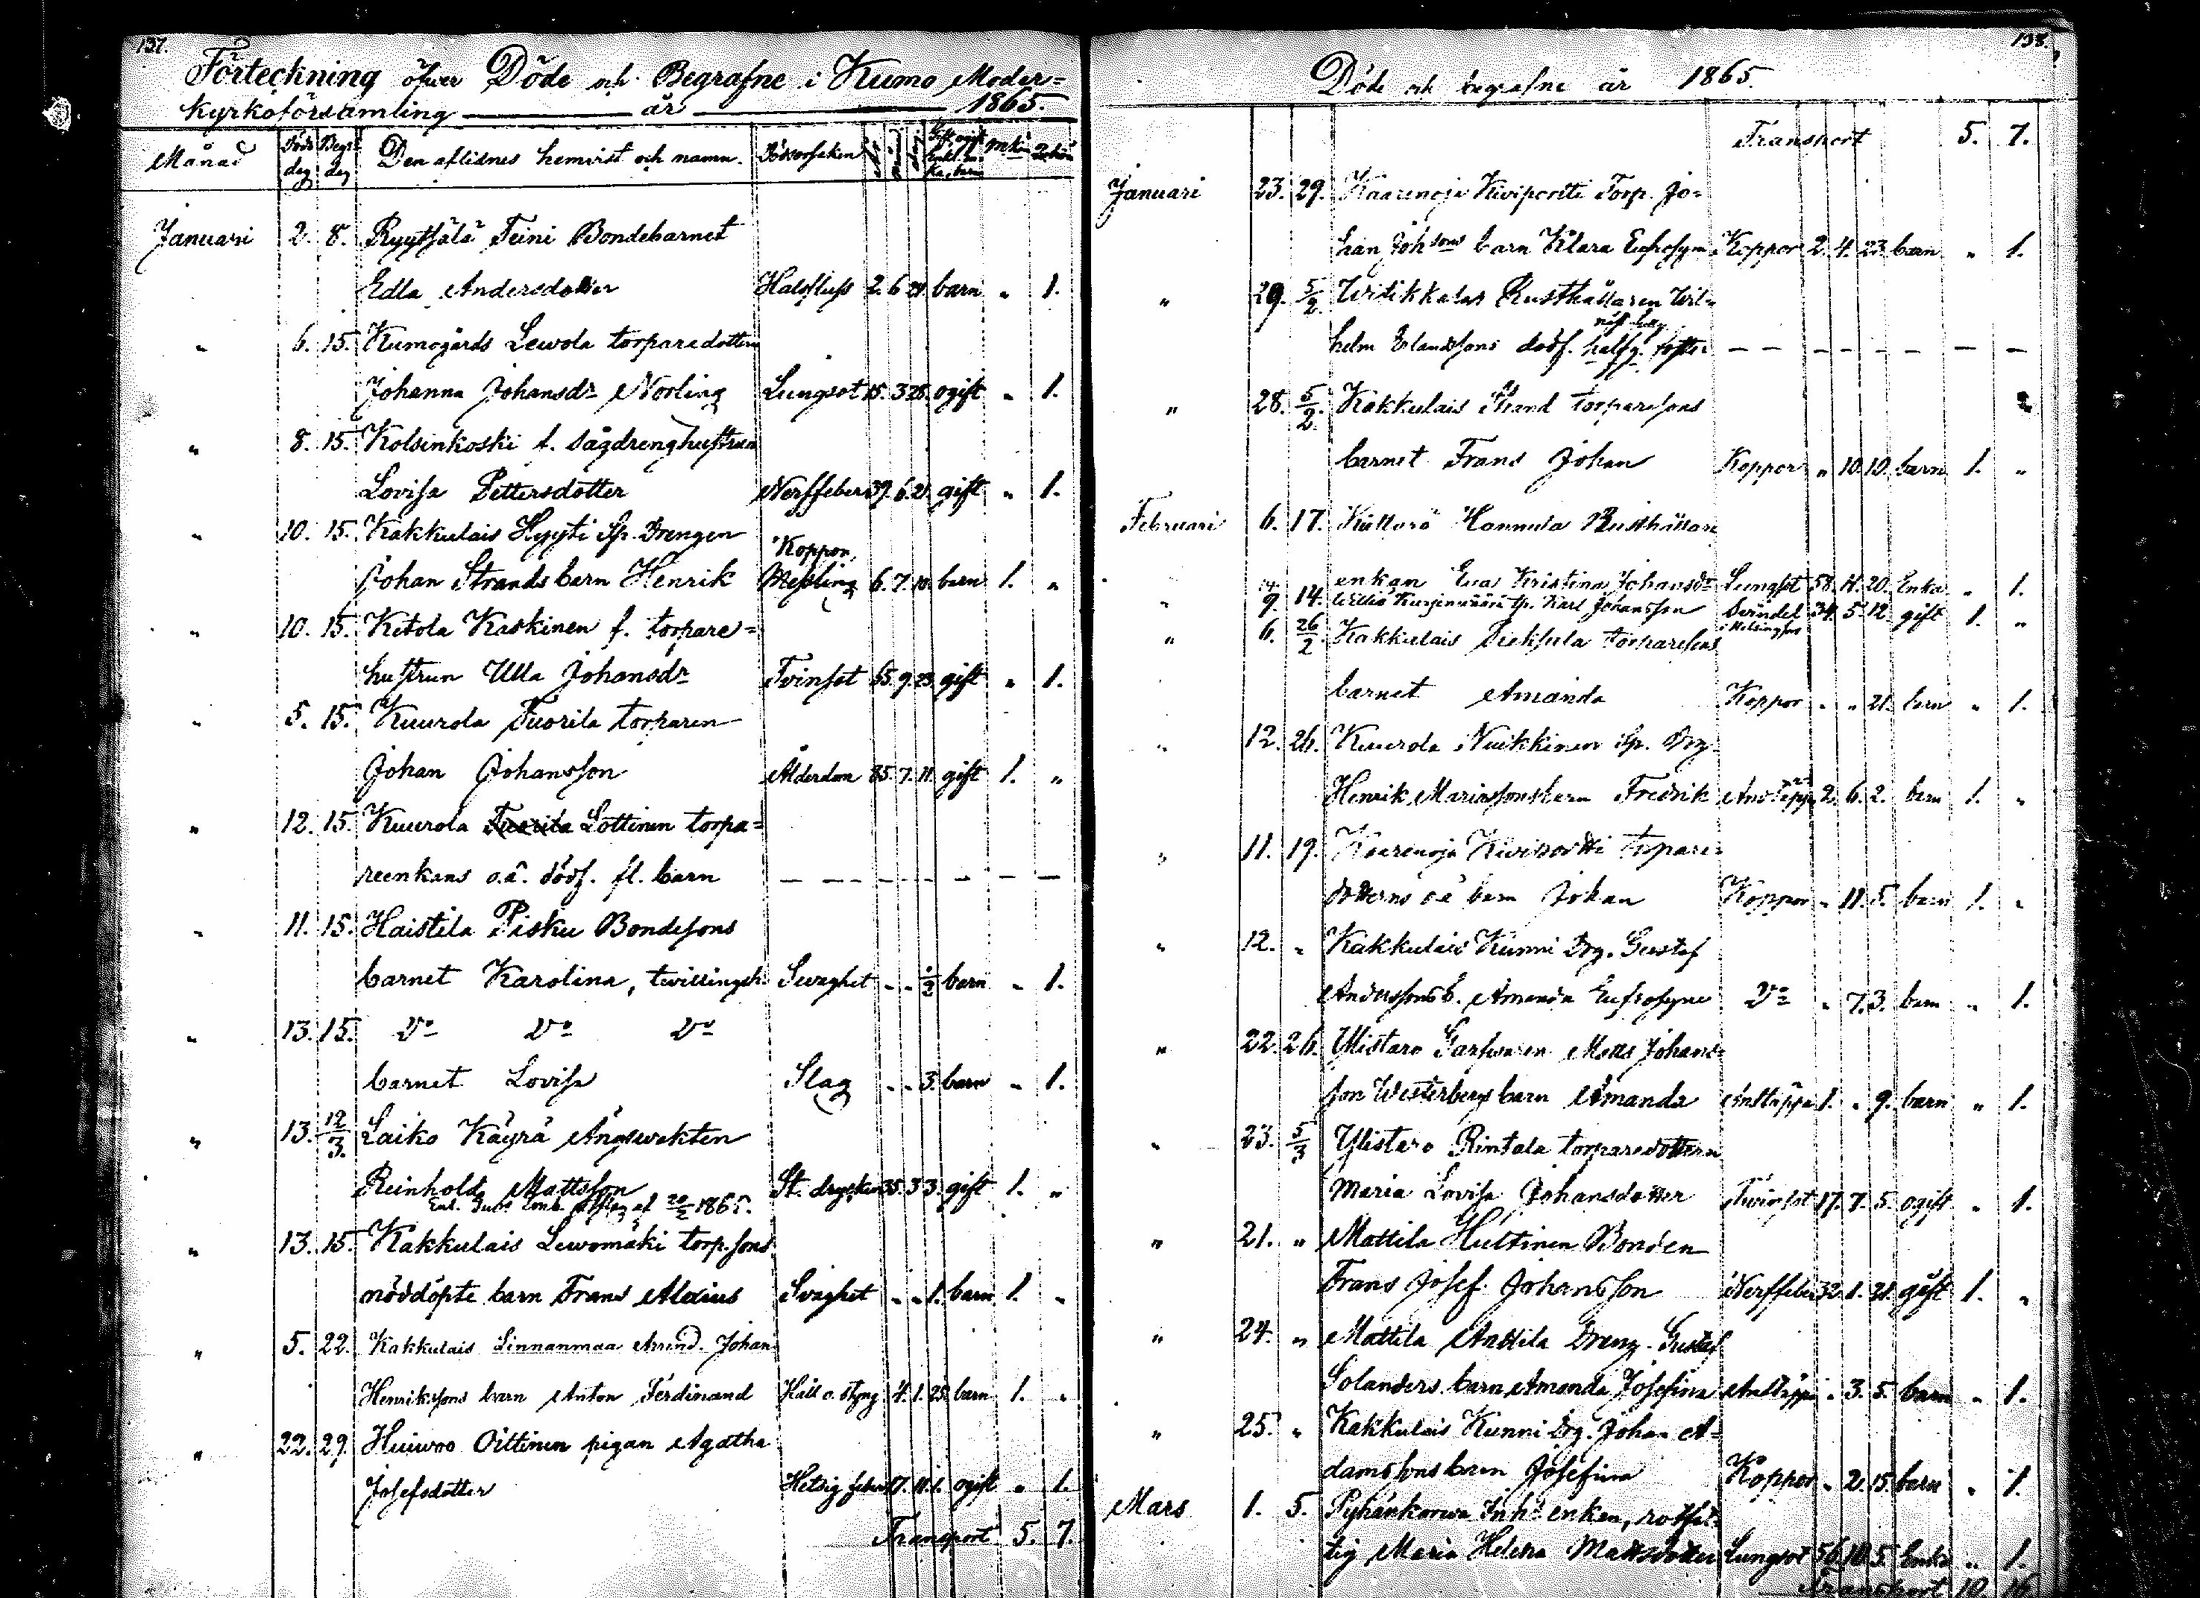 137.
Förteckning öfver Döde och Begrafne i Kumo Moder=
kyrkoförsamling år 1865.
Månad Döds dag Begr. dag Den aflidnes hemvist och namn. Dödsorsaken
Januari 2. 8. Ryytsälä Teini Bondebarnet
Edla Andersdotter Halsfluss 2. 6 21 barn " 1.
" 6. 15. Kumogårds Lewola torparedottren
Johanna Johansdr Norling Lungsot 15. 3 28. ogift " 1.
" 8. 15. Kolsinkoski f. Sågdrenghustrun
Lovisa Pettersdotter Nerffeber 39. 6. 21. gift " 1.
" 10. 15. Kakkulais Hyyti Sp. Drengen
Koppor,
Johan Strands barn Henrik Messling 6. 7. 10. barn 1. "
" 10. 15. Ketola Kaskinen f. torpare=
hustrun Ulla Johansdr Tvinsot 55. 9. 23. gift " 1.
" 5. 15. Kuurola Tuorila torparen
Johan Johansson Ålderdom 85. 7. 11. gift 1. "
" 12. 15. Kuurola Tuorila Lottinen torpa=
reenkans o.ä. dödf. fl. barn — — — — — — —
" 11. 15. Haistila Pisku Bondesons
barnet Karolina, twillingsb. Svaghet " " 1/2 barn " 1.
" 13. 15. Do Do Do
barnet Lovisa Slag " " 3. barn " 1.
" 13. 12/3. Laiko Käyrä Ängswakten
Reinhold Mattsson St. drycken 35. 3 3. gift 1. "
1865.
" 13. 15. Kakkulais Lewomäki torp.sons
nöddöpte barn Frans Alexius Svaghet " " 1. barn 1. "
" 5. 22. Kakkulais Linnanmaa Arrend. Johan
Henrikssons barn Anton Ferdinand Håll o. styng 4. 1. 25. barn 1. "
" 22. 29. Huiwoo Oittinen pigan Agatha
Josefsdotter Hetsig feber 17. 11. 1. ogift " 1.
Transport 5. 7.
138.
Döde och begrafne år 1865.
Transport 5. 7.
Januari 23. 29. Kaarenoja Kiviportti Torp. Jo=
han Johsons barn Klara Eufrosyne Koppor 2. 4. 23. barn " 1.
" 29. 5/2. Witikkalas Rusthållaren Wil=
helm Erlandssons dödf. — — — — — — —
" 28. 5/2. Kakkulais Strand torparesons
barnet Frans Johan Koppor " 10. 10. barn 1. "
Februari 6. 17. Hannula Rusthållare
enkan Eva Kristina Johansdr Lungsot 58. 11. 20. Enka " 1.
" 9. 14. Karl Johansson Svindel 34. 5. 12. gift 1. "
" 6. 26/2. Kakkulais torparesons
barnet Amanda Koppor " " 21. barn " 1.
" 12. 26. Kuurola Nuikkinen Sp. Drg.
Henrik Marinssons barn Fredrik Andtäppa 2. 6. 2. barn 1. "
" 11. 19. Kaarenoja Kiviportti torpare=
dotterns o.ä barn Johan Koppor " 11. 5. barn 1. "
" 12. " Kakkulais Kunni Drg. Gustaf
Anderssons b. Amanda Eufrosyne Do " 7. 3. barn " 1.
" 22. 26. Ylistaro Matts Johans=
son Westerbergs barn Amanda Andtäppa 1. " 9. barn " 1.
" 23. 5/3 Ylistaro Rintala torparedottern
Maria Lovisa Johansdotter Tvinsot 17. 7. 5. ogift " 1.
" 21. " Mattila Huttinen Bonden
Frans Josef Johansson Nerffeber 32. 1. 21. gift 1. "
" 24. " Mattila Anttila Dreng. Gustaf
Solanders barn Amanda Josefina Andtäppa " 3. 5. barn " 1.
" 25. " Kakkulais Kunni Drg. Johan A=
damssons barn Josefina Koppor " 2. 15. barn " 1.
Mars 1. 5. Pyhänkorwa Inhs enkan, rotfat=
tig Maria Helena Mattsdotter Lungsot 56. 10. 5. Enka " 1.
Transport 10. 16.